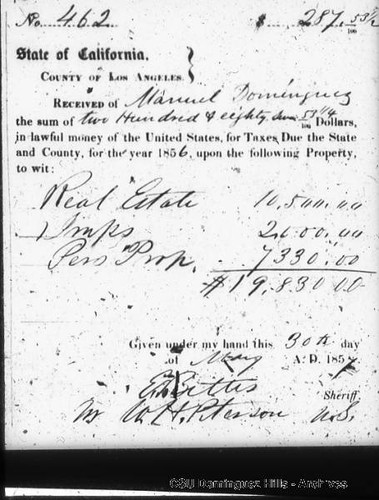 No. 462 $ 287. 53½/100
State of California,
COUNTY OF LOS ANGELES.
RECEIVED OF Manuel Dominguez
the sum of two Hundred & eighty seven Dollars,
in lawful money of the United States, for Taxes Due the State
and County, for the year 1856, upon the following Property,
to wit:
Real Estate 10.500.00
Imps 2000.00
Pers Prop. 7330.00
$19.830 00
Given under my hand this 30th day
of May A. D. 1857
Sheriff
W. H. Peterson U.S.
CSU Dominguez Hills - Archives